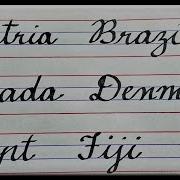 tria Brazi
ada Denm
pt Fiji